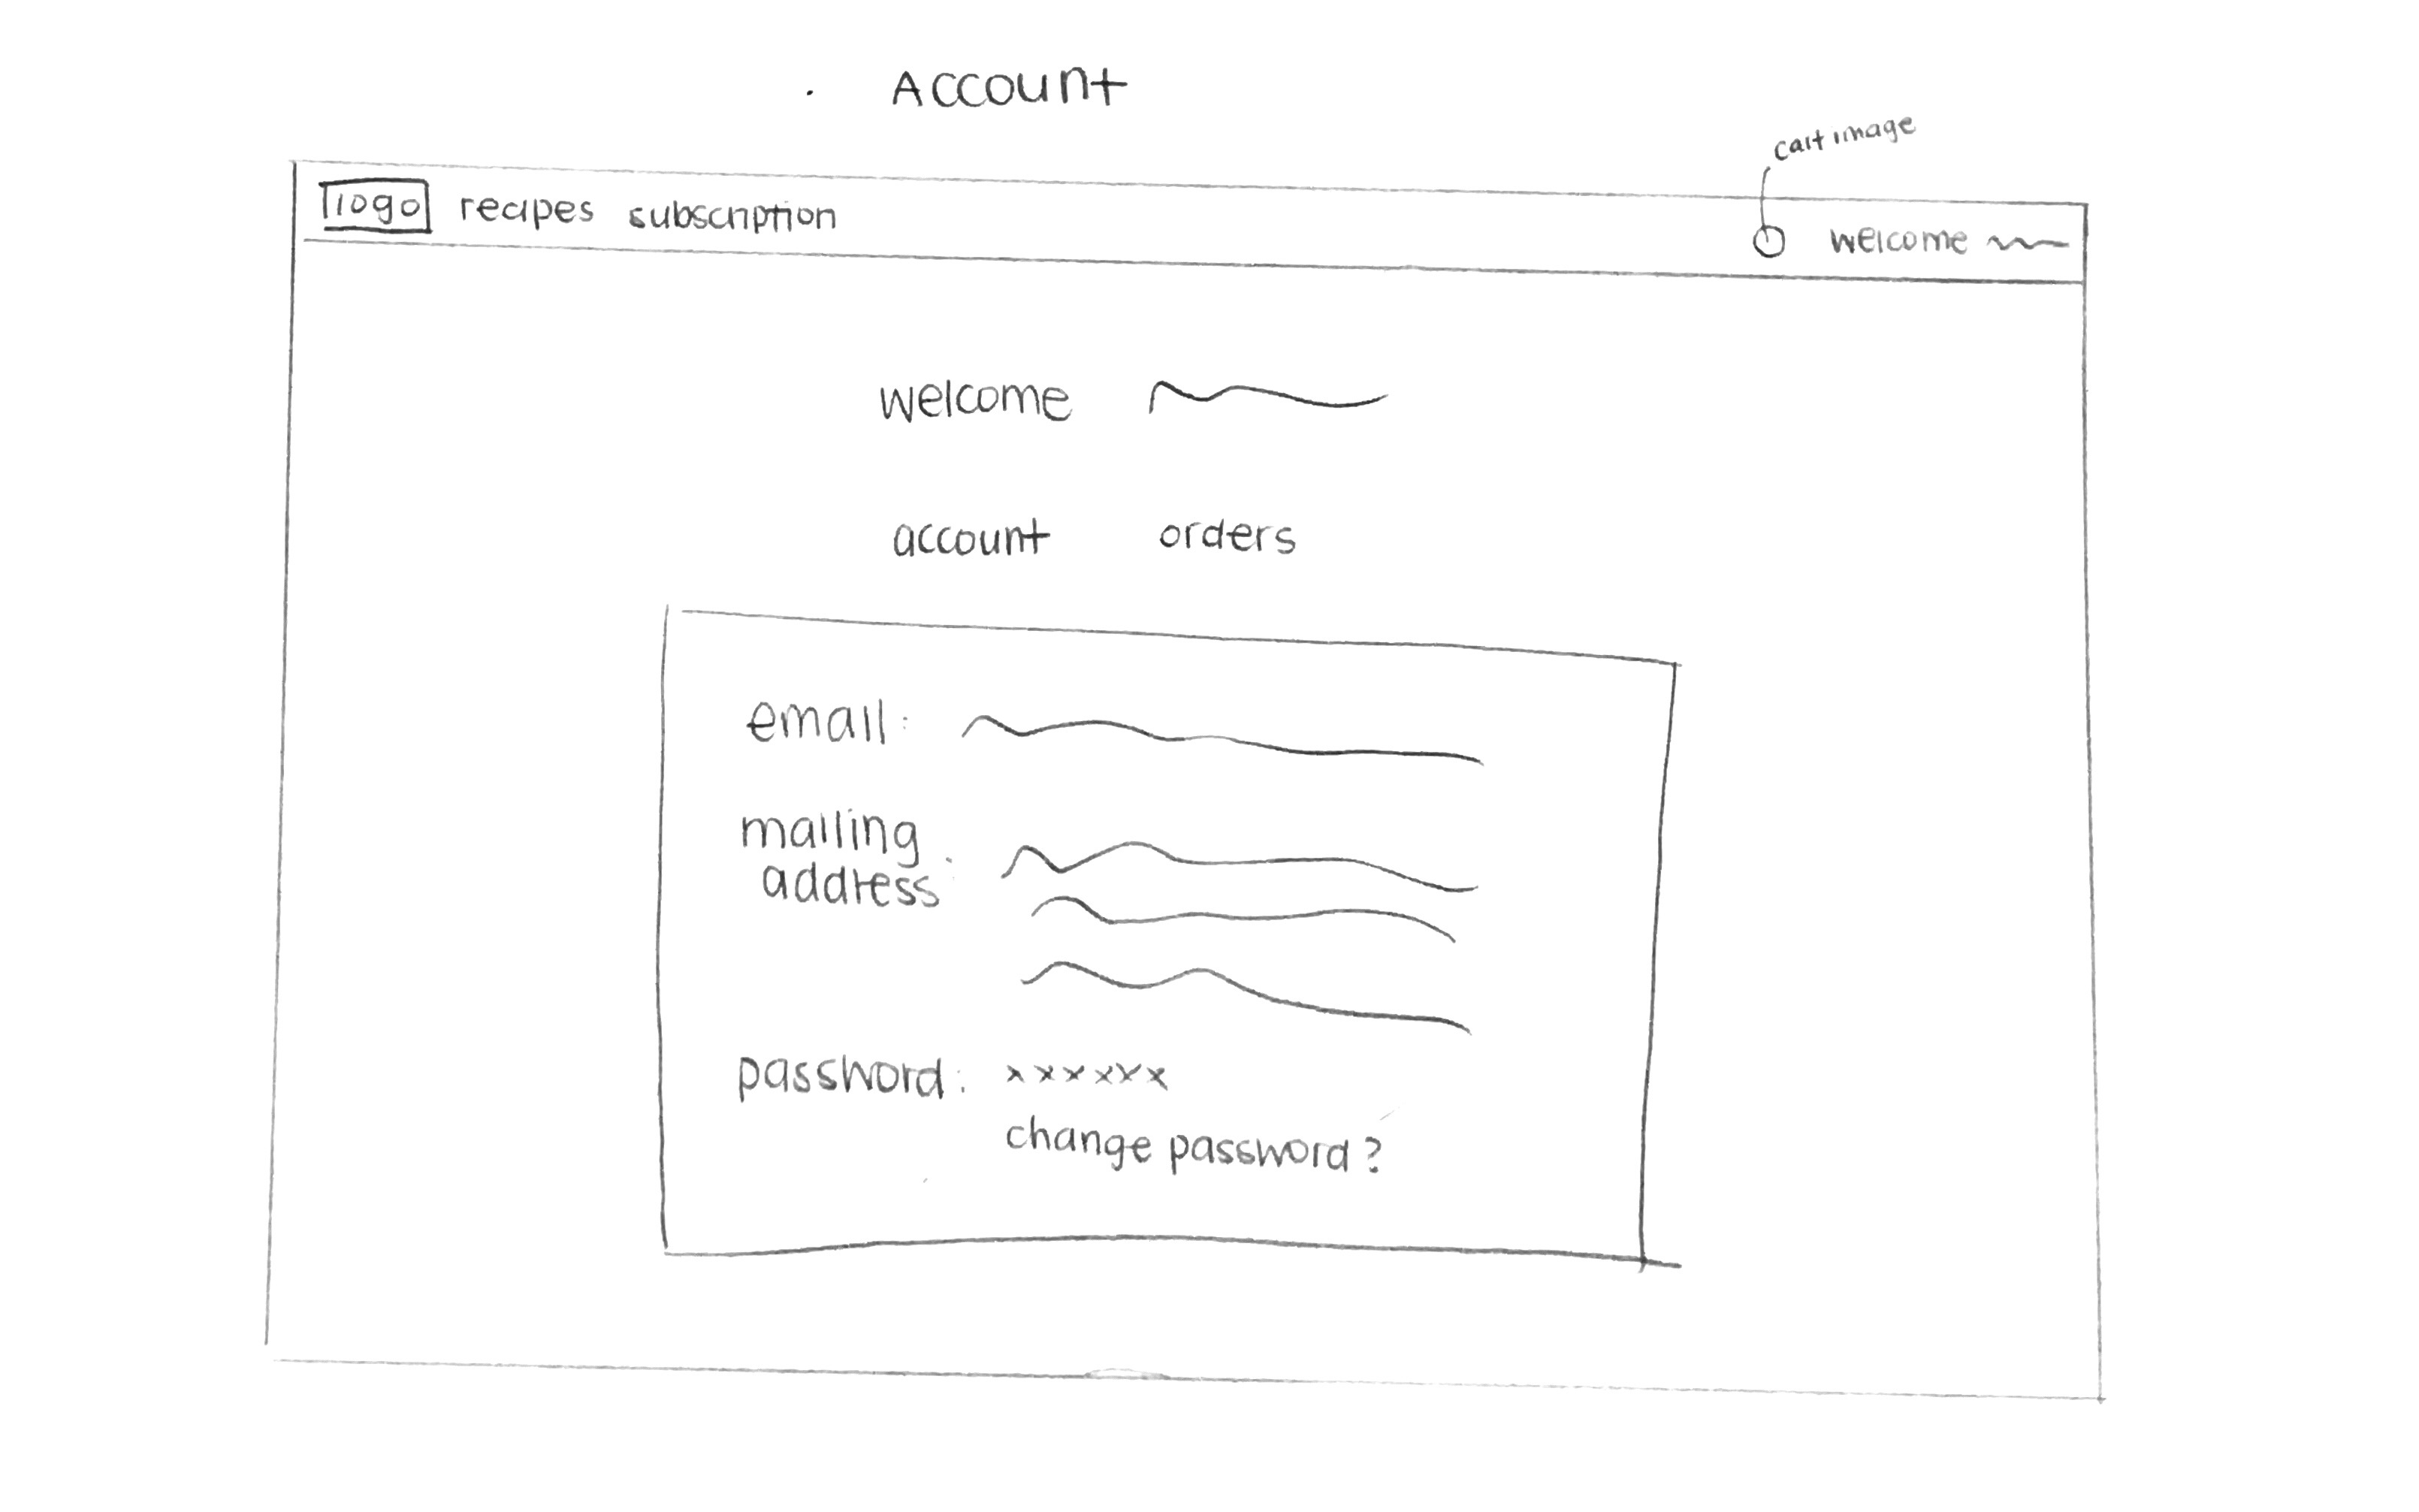 Account
cart image
logo recipes subscription welcome
welcome
account orders
email:
mailing
address:
password: xxxxxx
change password?